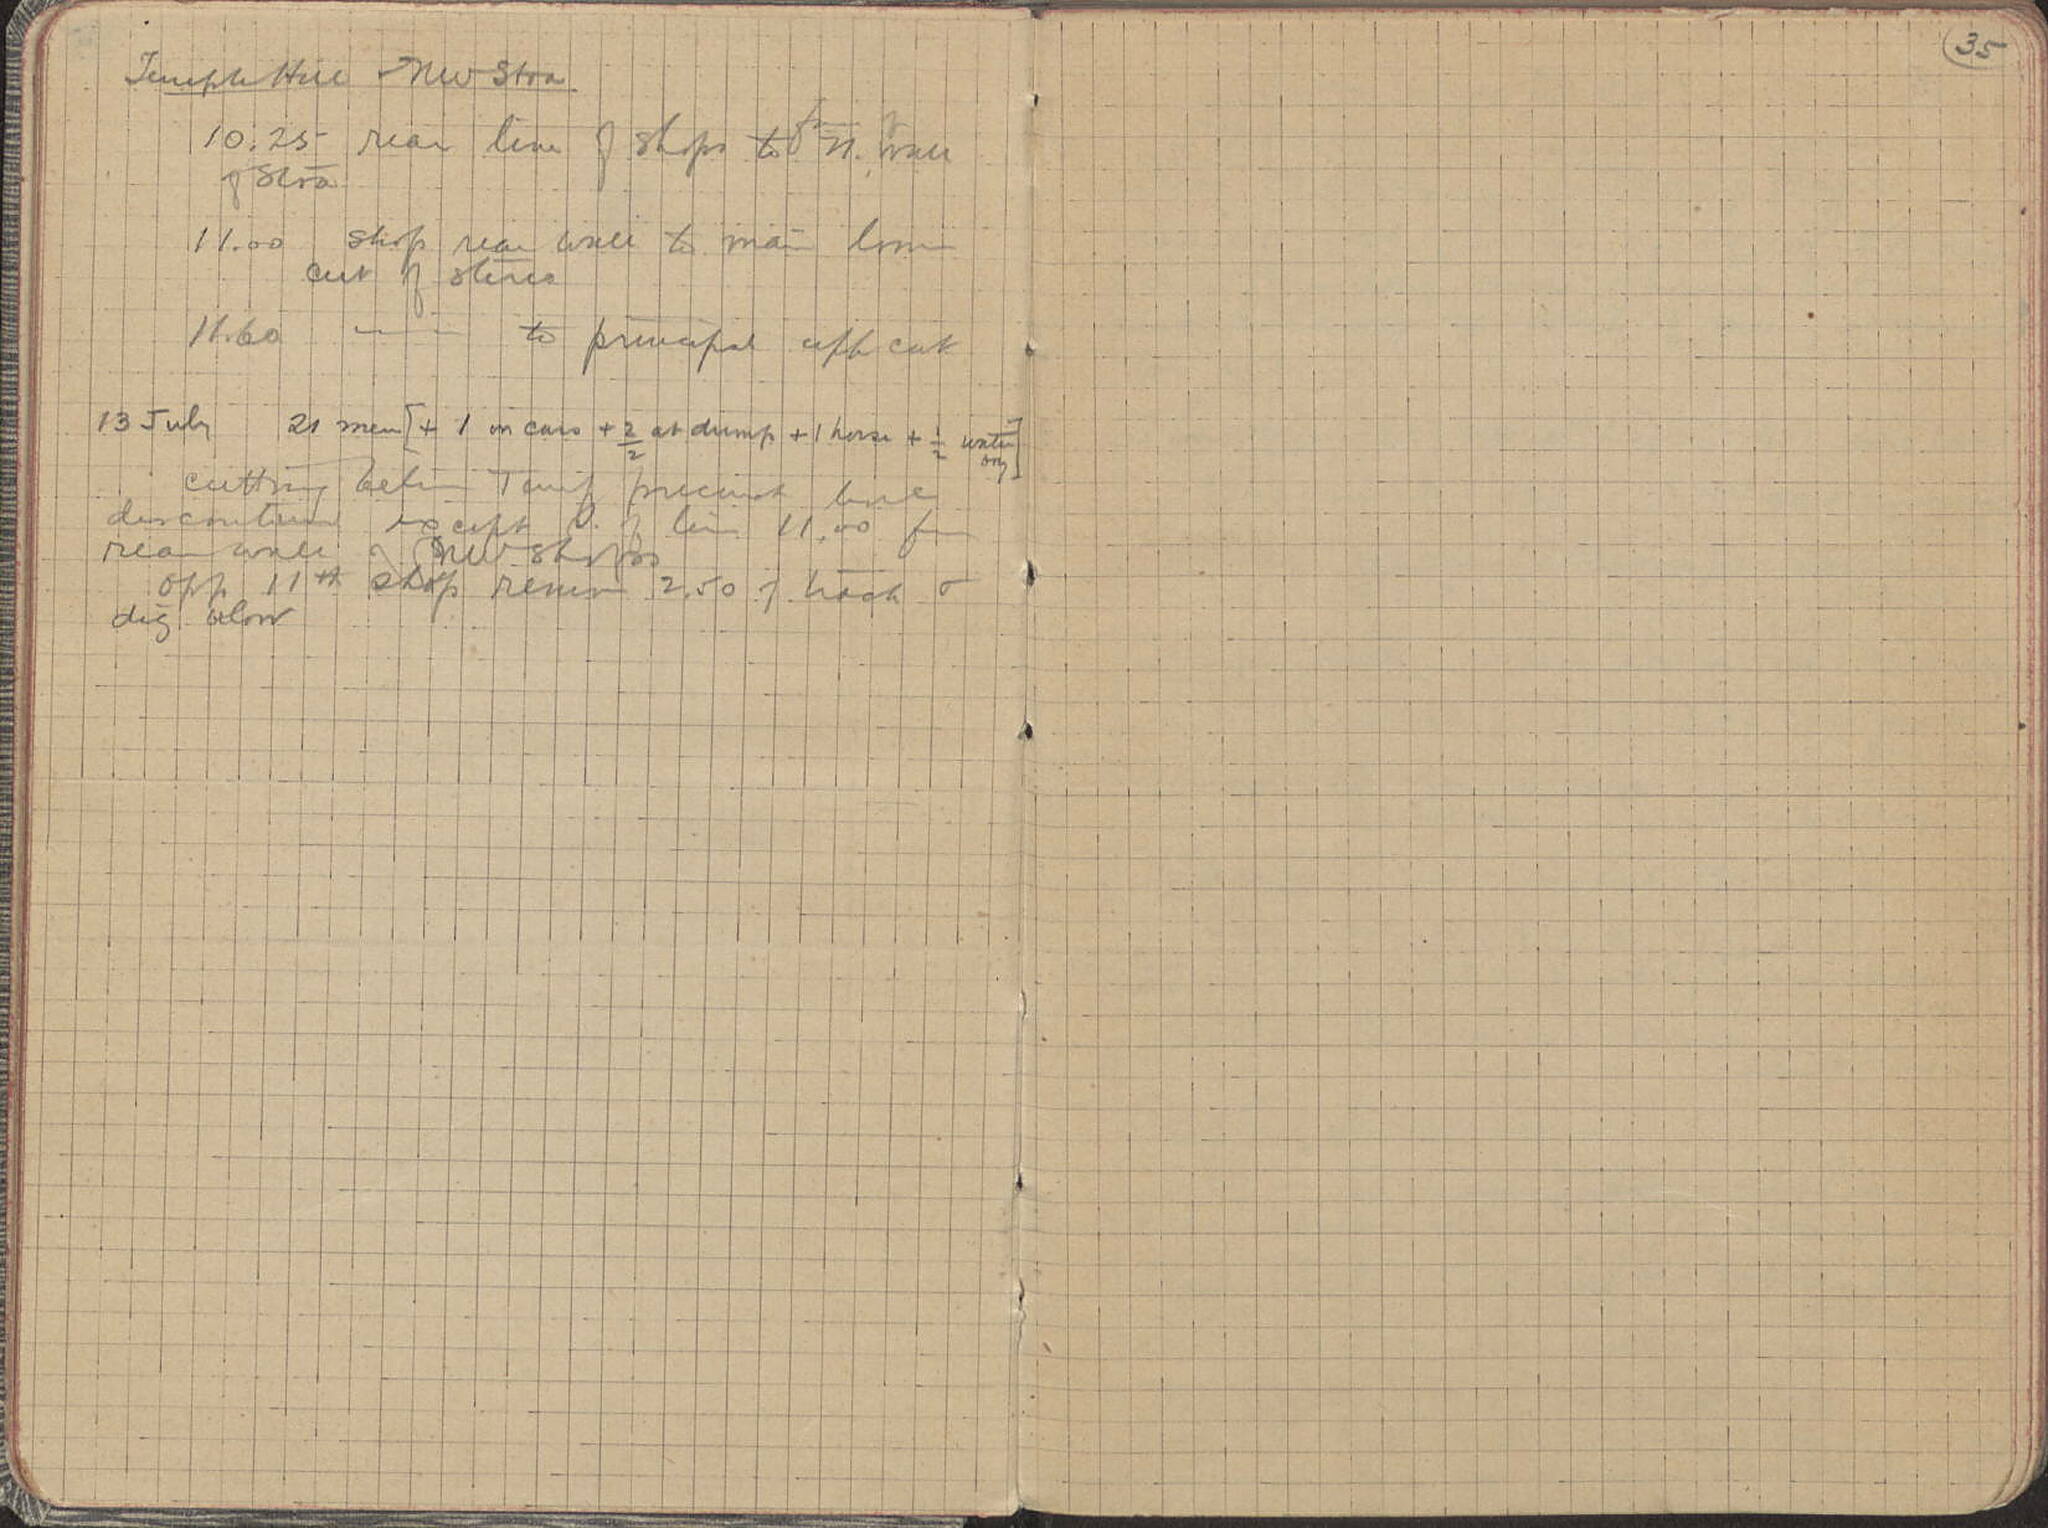 35
Temple Hill NW Stoa
10.25 rear line of shops to N. wall
of Stoa
11.00 shop rear wall to main lower
cut of stereo
11.60 — — to principal upper cut
13 July 21 men [+ 1 on cars + 2/2 at dump + 1 horse + 1/2 water boy]
cutting Temp precinct level
discontinued except of line 11.00 fm
rear wall of NW shops
opp 11th shop remove 2.50 of track &
dig below